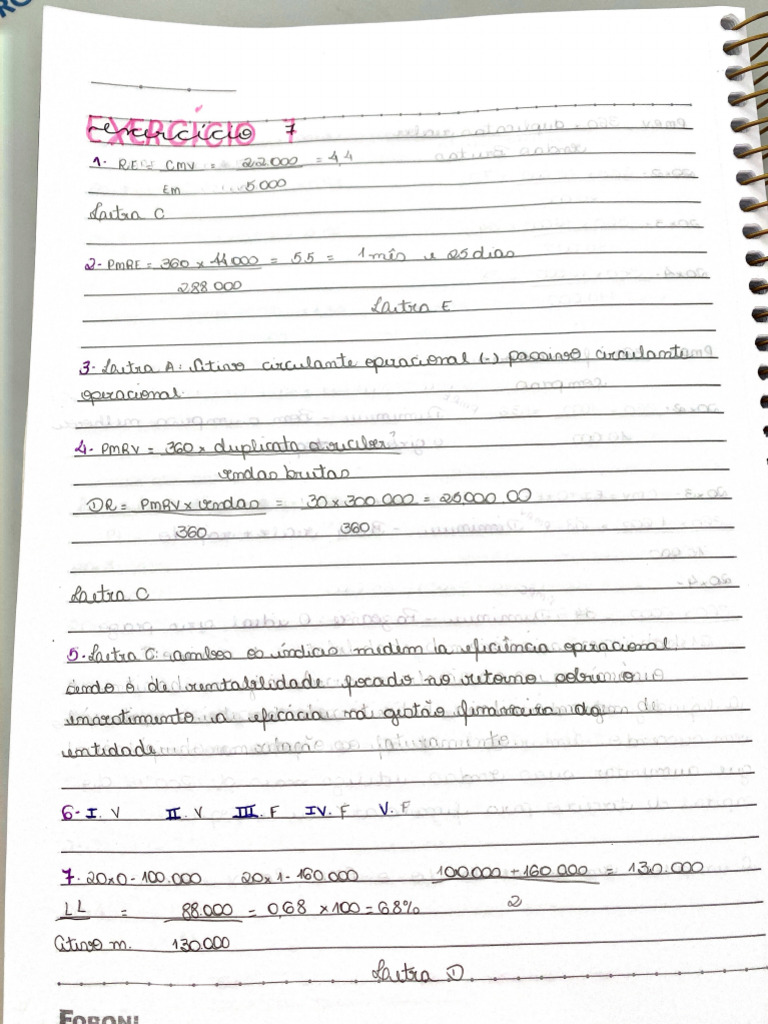 EXERCÍCIO 7
exercício
1. RE = CMV = 22.000 = 4,4
Em 5.000
Letra C
2- PMRE = 360 x 44 000 = 55 = 1 mês e 25 dias
288 000
Letra E
3. Letra A: Ativo circulante operacional (-) passivo circulante
operacional.
4. PMRV = 360 x duplicata a receber
vendas brutas
DR = PMRV x vendas = 30 x 300 000 = 25,000 00
360 360
Letra C
5. Letra C: ambos os índices medem a eficiência operacional,
sendo o de rentabilidade focado no retorno sobre o
investimento a eficácia na gestão financeira da
entidade
6- I. V II. V III. F IV. F V. F
7. 20x0 - 100.000 20x1 - 160.000 100.000 + 160.000 = 130.000
2
LL = 88.000 = 0,68 x 100 = 68%
Ativo m. 130.000
Letra D.
FORONI